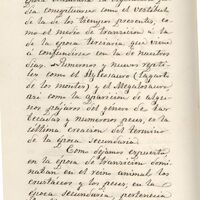 dia completamos con el vestibul
de la de los tiempos presentes, co
mo el medio de transicion a la
de la época terciaria que viene
á confundirse en la de nuestros
dias. Numerosos y nuevos repti
les como el Hyleosauro (lagarto
de los montes) y el Megalosauro,
asi como la aparicion de algu
nos pájaros del género de las
becadas y numerosos peces, es la
última creacion del termino
de la época secundaria.
Como dejamos expuesto,
en la época de transicion domi
naban en el reino animal los
crustaceos y los peces, en la
época secundaria, pertenecia